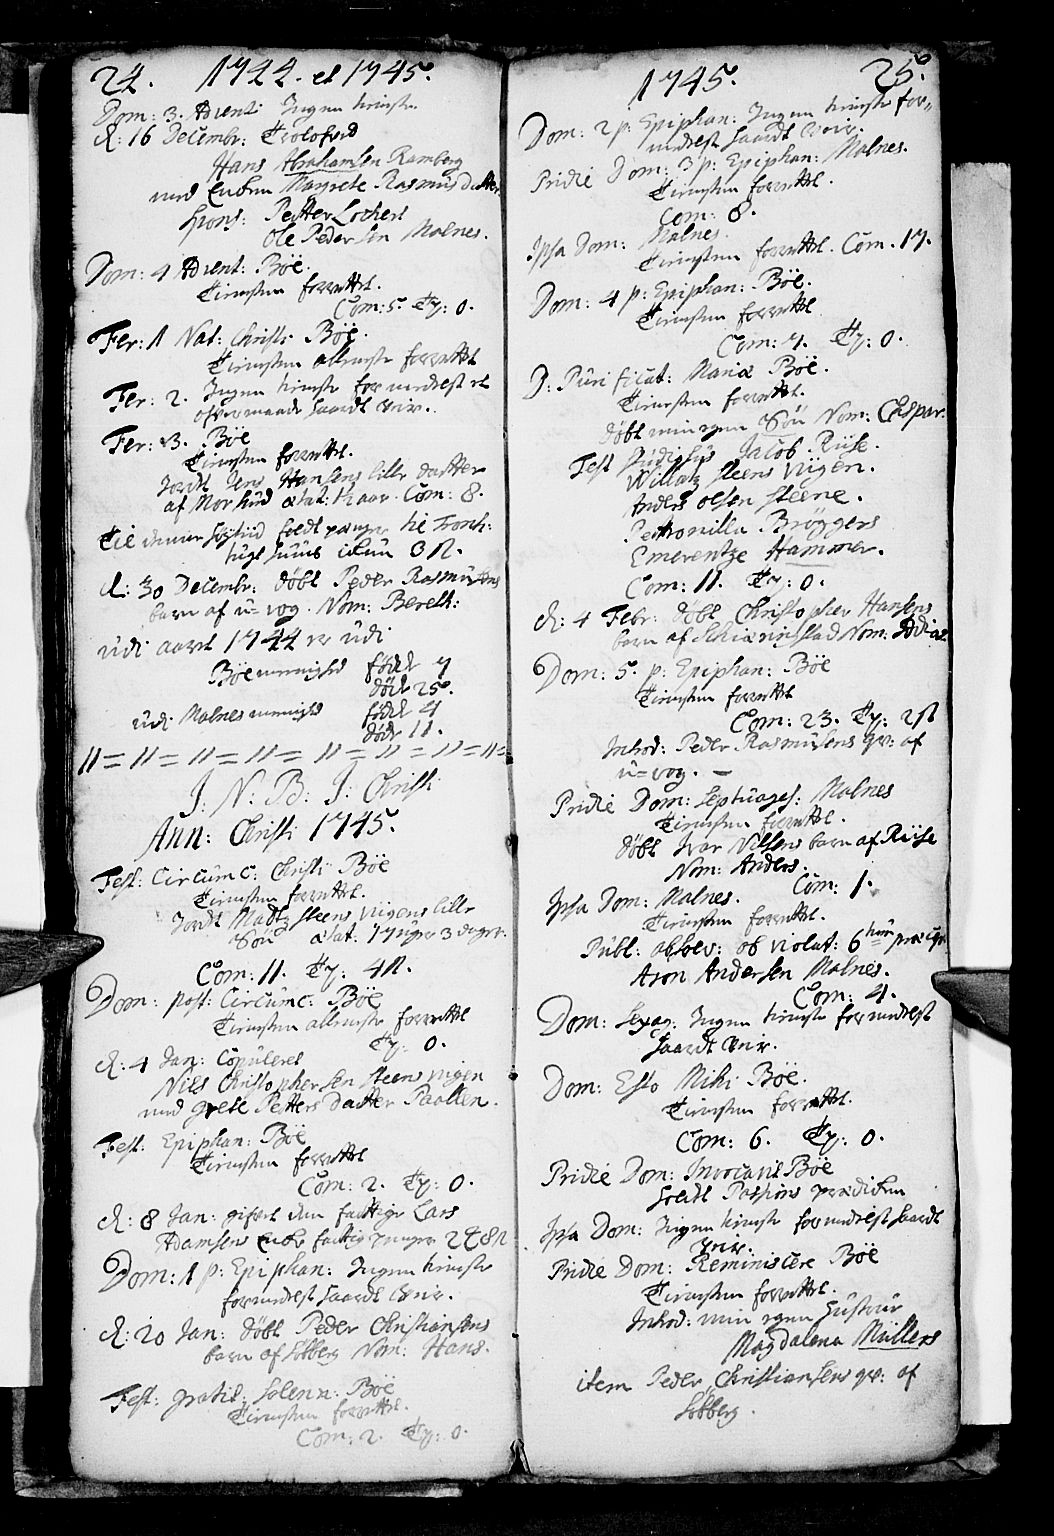 24. 1744. et 1745.
Dom: 3. Advent: Ingen tieniste
d: 16 Decembr: Trolofved
Hans Abrahamsen Ramberg
med Enken Margrete Rasmus Datter
Spons: Petter Lochert
Ole Pedersen Malnes.
Dom: 4 Advent: Böe.
Tienesten forrettet.
Com: 5 Tv: 0.
Fer: 1 Nat: Christi Böe.
Tienesten allene forrettet
Fer: 2. Ingen tieniste formedelst et
ofvermaade haardt veir.
Fer: 3. Böe
Tienesten forrettet.
Jordt Jens Hansens lille datter
af Morhud ætat: 12 aar. Com: 8.
Til denne högtiid faldt penger til Tronh:
huus ickun 3
d: 30 Decembr: döbt Peder Rasmusens
barn af u-vog. Nom: Bereth:
udi aaret 1744 er udi
Böe menighed fódt 7
döde 25.
udi Malnes menighed fódt 4
döde 11.
J: N: B: J: Christi
Ann: Christi 1745.
Fest: Circumc: Christi Böe
Tienesten forrettet.
Jordt Madtz Steensviigens lille
Sön ætat: 17 uger 3 dager.
Com: 11. Tv: 4
Dom: post: Circumc: Böe
Tienesten allene forrettet
Tv: 0.
d: 4 Jan: Copuleret
Nils Christophersen Steensvigen
med Grete Petters Datter Paallen.
Fest: Epiphan: Böe
Tienesten forrettet
Com: 2. Tv: 0.
d: 8 Jan: gifvet den fattige Lars
Adamsens Enke fattig penger
Dom: 1 p: Epiphan: Ingen tieniste
formedelst haardt veir.
d: 20 Jan: döbt Peder Christiansens
barn af Solberg Nom: Hans.
Fest: gratis: solenn: Böe
Tienesten forrettet.
Com: 2. Tv: 0.
1745. 25.
Dom: 2 p: Epiphan: Ingen tieniste for-
medelst haardt veir.
Pridie Dom: 3 p: Epiphan: Malnes.
Tienesten forrettet.
Com: 8.
Ipsa Dom: Malnes.
Tienesten forrettet. Com. 17.
Dom: 4 p: Epiphan: Böe.
Tienesten forrettet
Com: 7. Tv: 0.
D: Purificat: Mariæ Böe.
Tienesten forrettet.
döbt min egen Sön Nom: Chaspar.
Test Jacob Riise.
Willatz Steensviigen.
Anders Olsen Steene.
Petronilla Bröggers
Emerentze Hammer.
Com: 11. Tv: 0.
d: 4 Febr: döbt Christopher Hansens
barn af Nom:
Dom: 5. p: Epiphan: Böe
Tienesten forrettet
Com: 23. Tv: 2
Introd: Peder Rasmusens qv: af
u-vog. -
Pridie Dom: Septuages: Malnes
Tienesten forrettet.
döbt Ivar Nilsens barn af Riise
Nom: Anders.
Com: 1.
Ipsa Dom: Malnes.
Tienesten forrettet.
Publ: absolv: ob violat: 6tum præcept
Aron Andersen Malnes.
Com: 4.
Dom: Sexag: Ingen tieniste formedelst
haardt veir.
Dom: Esto Mihi Böe.
Tienesten forrettet.
Com: 6. Tv: 0.
Pridie Dom: Invocavit Böe
holdt Passions prædicken
Ipsa Dom: Ingen tieniste formedelst haardt
veir.
Pridie Dom: Reminiscere Böe
Tienesten forrettet.
Introd: min egen Hustrue
Magdalena Müllers
item Peder Christiansens qv: af
Solberg.